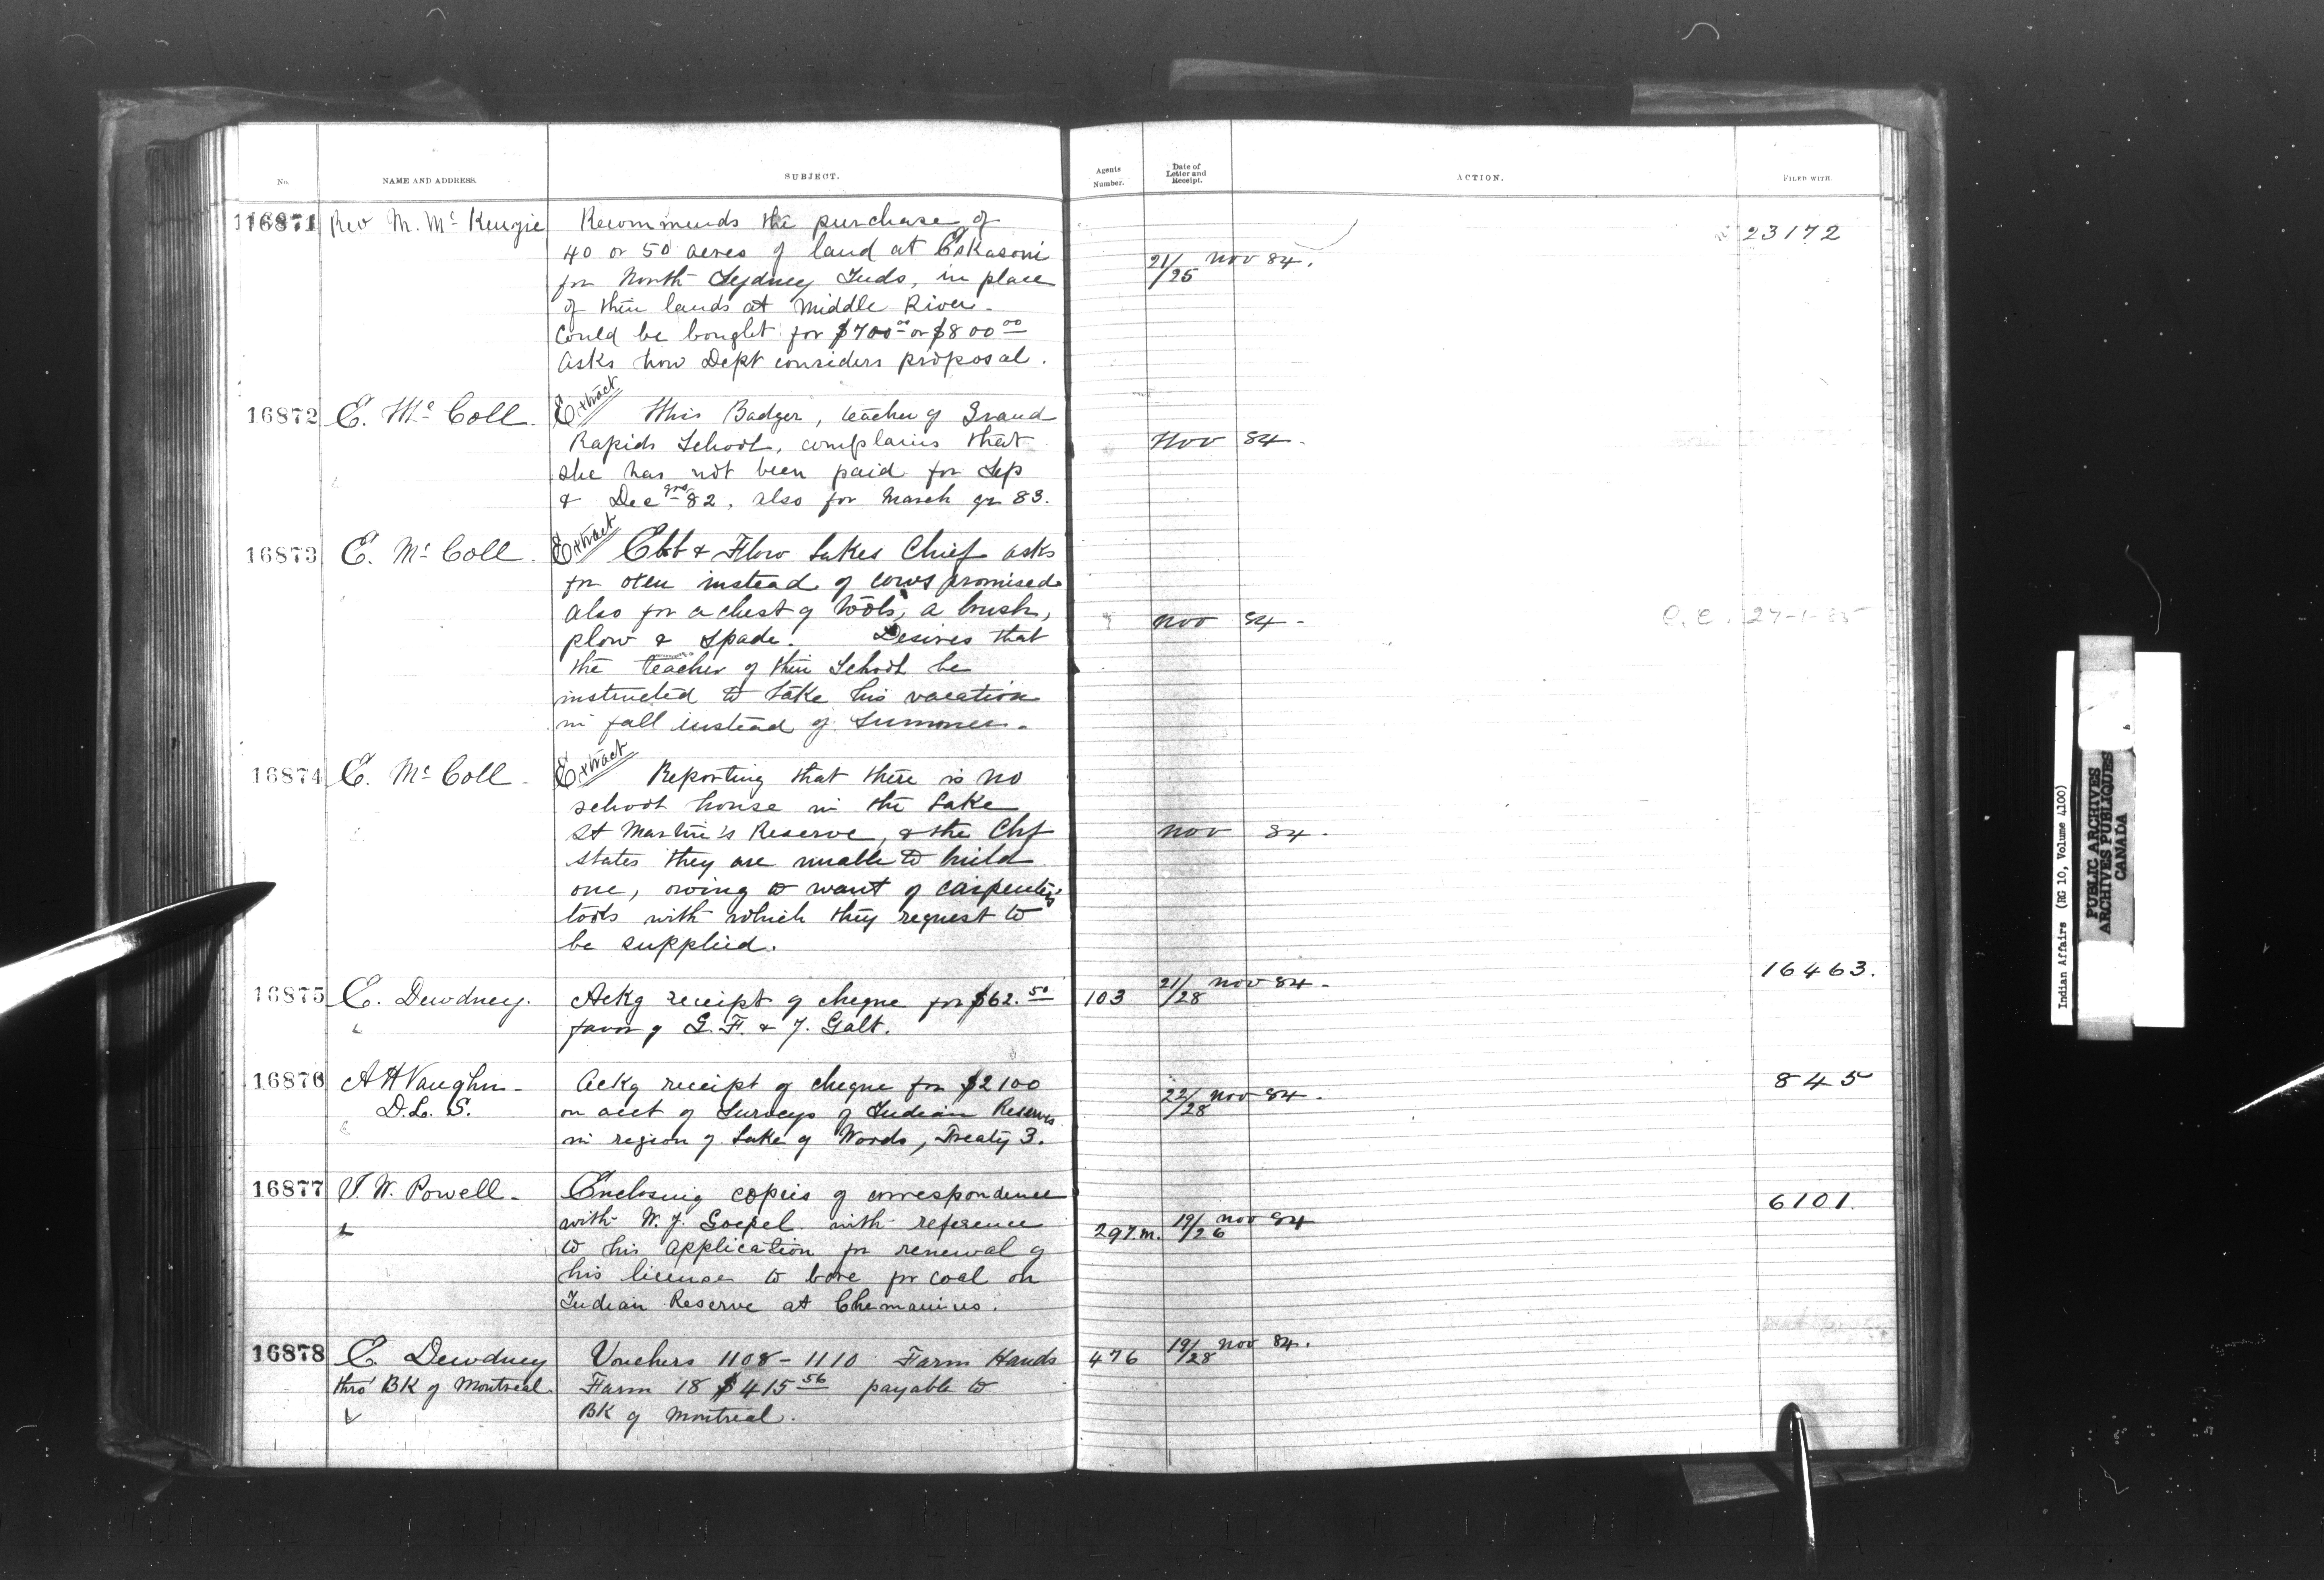 No.
NAME AND ADDRESS.
SUBJECT.
Agents Number.
Date of Letter and Receipt.
ACTION.
FILED WITH.
116871
Rev M. Mc Kenzie
Recommends the purchase of
40 or 50 acres of land at Eskasoni
for North Sydney Inds, in place
of their lands at Middle River.
Could be bought for $700.00 or $800.00
Asks how Dept considers proposal.
21/25 Nov 84.
23172
16872
E. Mc Coll.
Extract
Miss Badger, teacher of Grand
Rapids School, complains that
she has not been paid for Sep
& Dec qrs 82, also for March qr 83.
Nov 84.
16873
E. Mc Coll.
Extract
Ebb & Flow Lakes Chief asks
for oxen instead of cows promised
also for a chest of tools, a brush,
plow & spade. Desires that
the teacher of their School be
instructed to take his vacation
in fall instead of Summer.
Nov 84 -
27-1-85
16874
E. Mc Coll -
Extract
Reporting that there is no
school house in the Lake
St Martin's Reserve, & the Chf
states they are unable to build
one, owing to want of carpenters
tools with which they request to
be supplied.
Nov 84.
16875
E. Dewdney.
Ackg receipt of cheque for $62.50
favor of G. F. & J. Galt.
103
21/28 Nov 84 -
16463.
16876
A H Vaughn -
D.L.S.
Ackg receipt of cheque for $2100
on acct of Surveys of Indian Reserves
in region of Lake of Woods, Treaty 3.
22/28 Nov 84.
845
16877
I. W. Powell -
Enclosing copies of correspondence
with W. J. Goepel with reference
to his application for renewal of
his license to bore for coal on
Indian Reserve at Chemainus.
297.m.
19/26 Nov 84
6101.
16878
E. Dewdney
thro' BK of Montreal.
Vouchers 1108 - 1110 Farm Hands
Farm 18 $415.56 payable to
BK of Montreal.
476
19/28 Nov 84.
Indian Affairs (RG 10, Volume 4,100)
PUBLIC ARCHIVES
ARCHIVES PUBLIQUES
CANADA